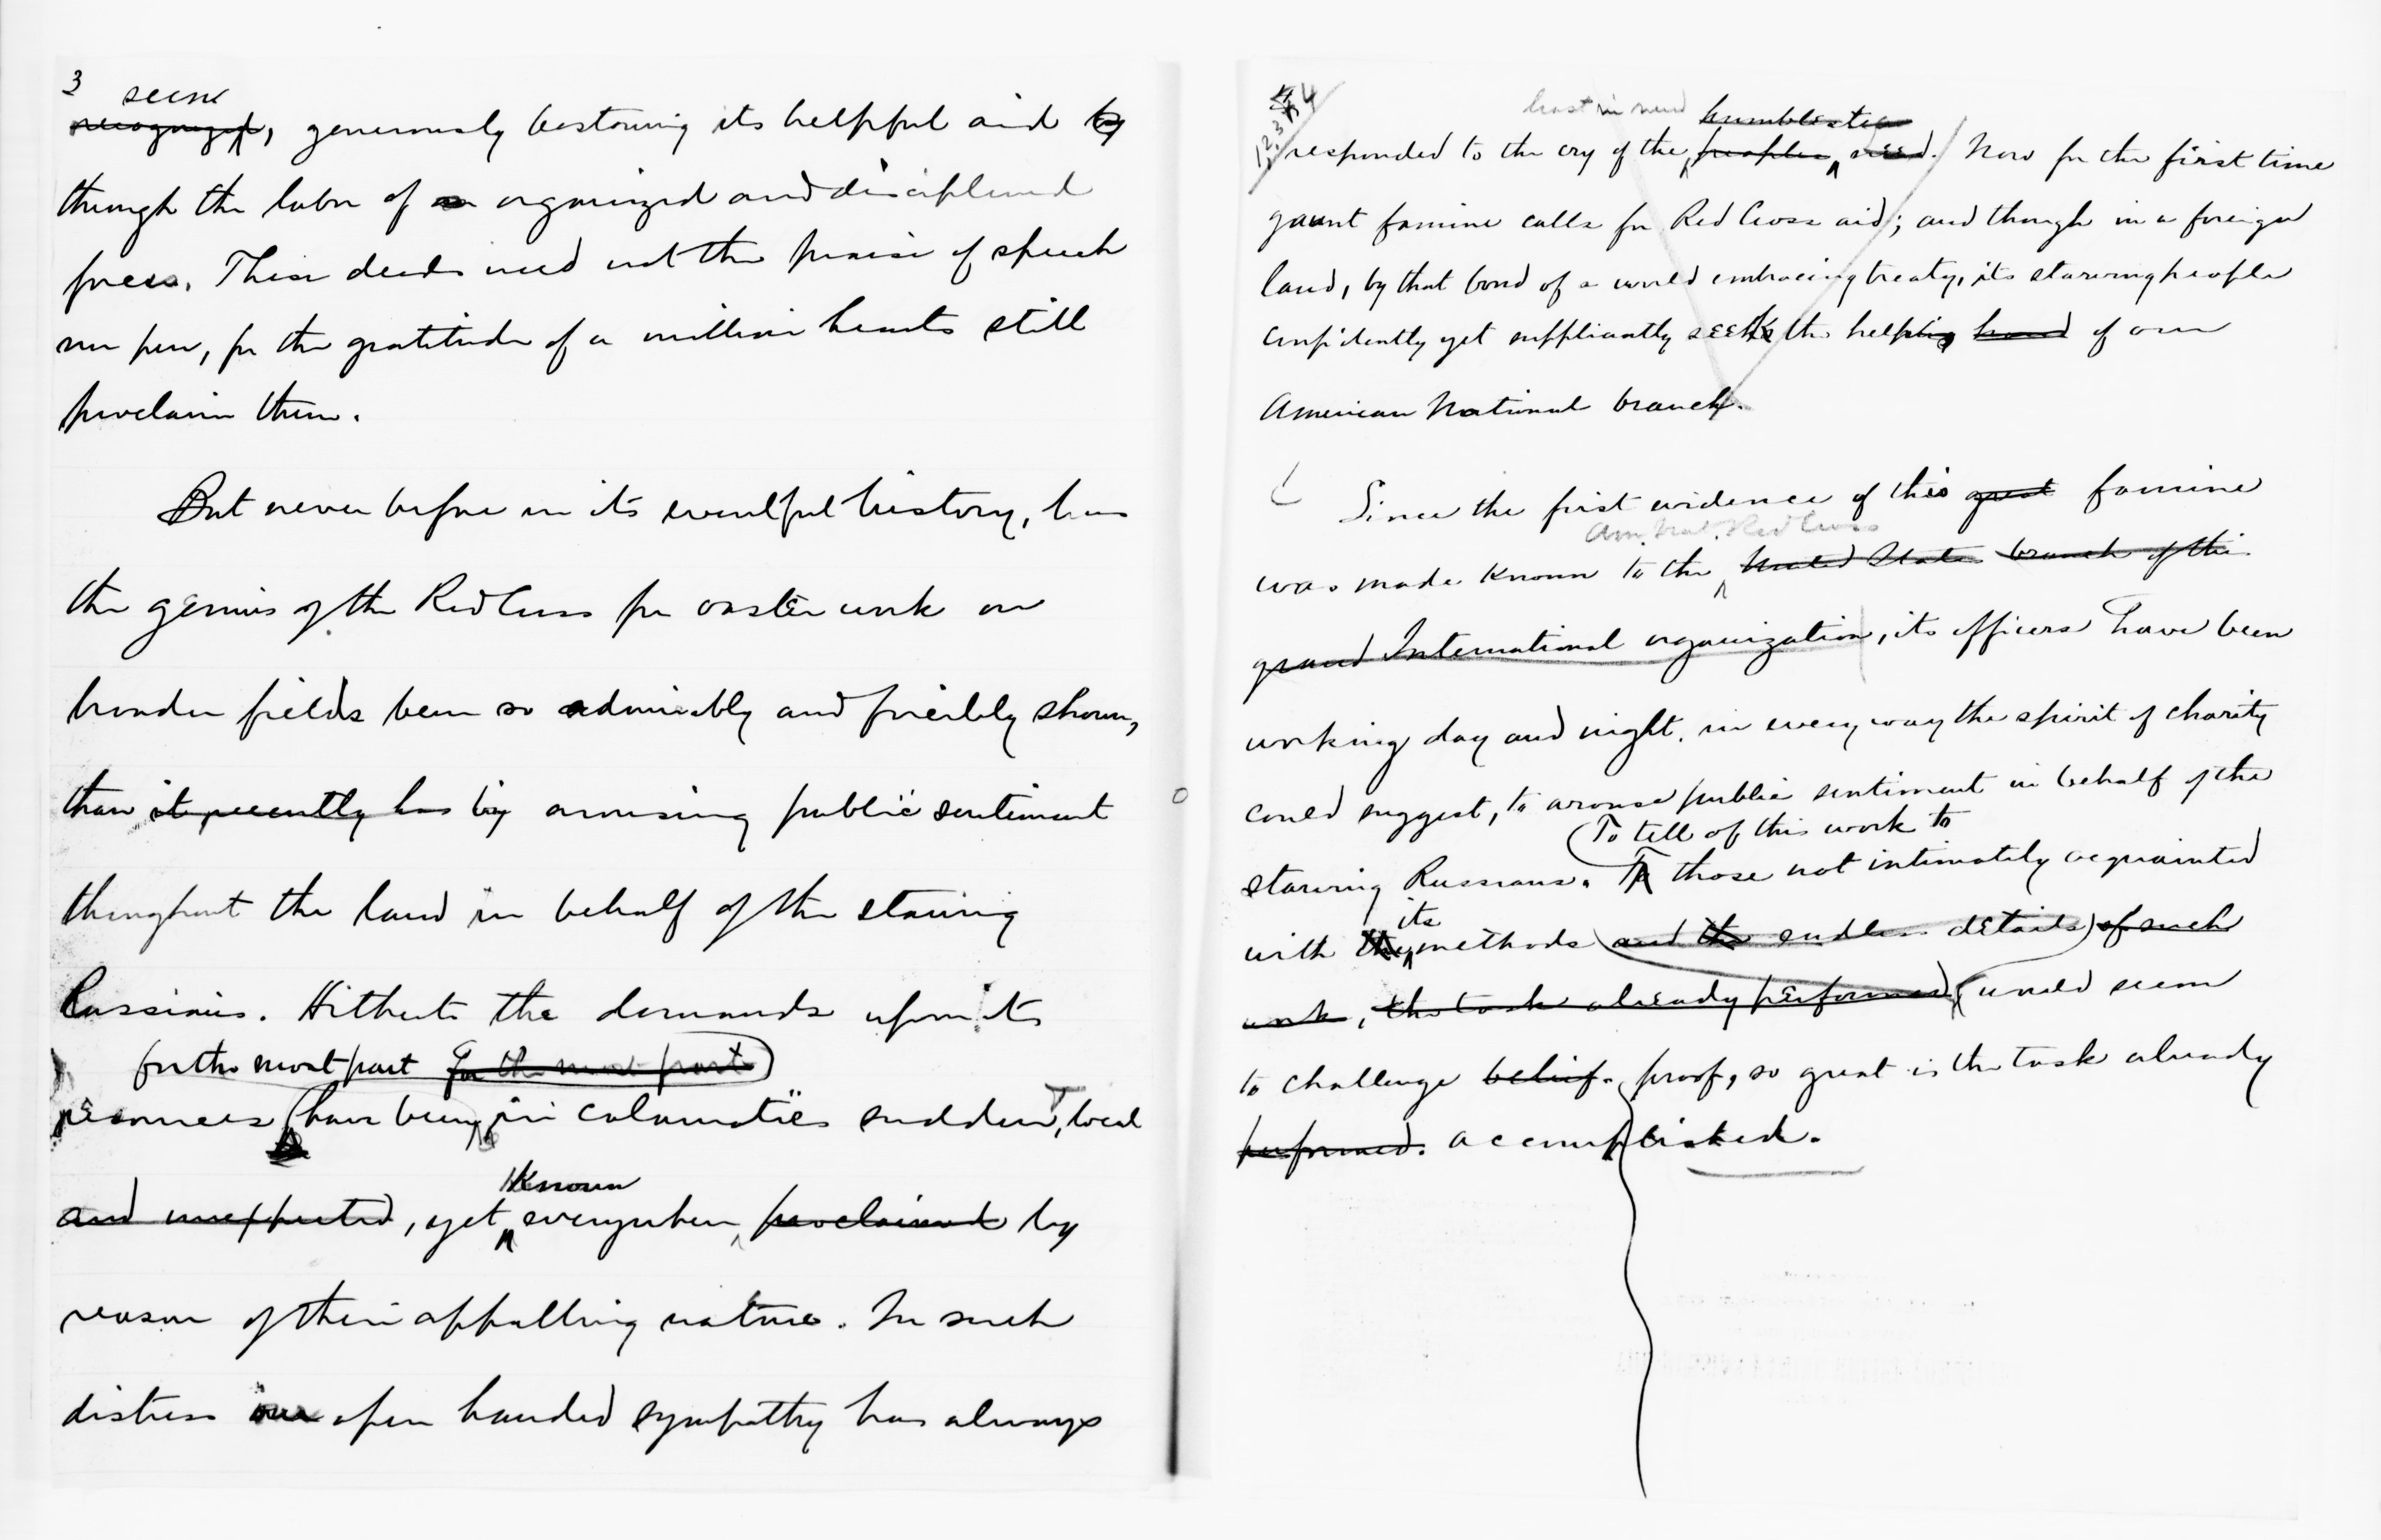 3
seen
recognized, generously bestowing its helpful aid by
through the labor of an organized and disciplined
force. These deeds need not the praise of speech
nor pen, for the gratitude of a million hearts still
proclaim them.
But never before in its eventful history, has
the genius of the Red Cross for vaster work on
broader fields been so admirably and forcibly shown,
than it recently has by arousing public sentiment
throughout the land in behalf of the starving
Russians. Hitherto the demands upon its
for the most part for the most part
resources have been in calamaties sudden, local
known
and unexpected, yet everywhere proclaimed by
reason of their appalling nature. In such
distress our open handed sympathy has always
4
humblest
responded to the cry of the peoples need. Now for the first time
gaunt famine calls for Red Cross aid; and though in a foreign
land, by that bond of a world embracing treaty, its starving people
confidently yet suppliantly seek the helping hand of our
American National branch.
Since the first evidence of this great famine
Am. Nat. Red Cross
was made known to the United States branch of the
grand International organization, its officers have been
working day and night, in every way the spirit of charity
could suggest, to arouse public sentiment in behalf of the
To tell of this work to
starving Russians. To those not intimately acquainted
its
with the methods and the endless details of such
work, the task already performed, would seem
to challenge belief. proof, so great is the task already
performed. accomplished.